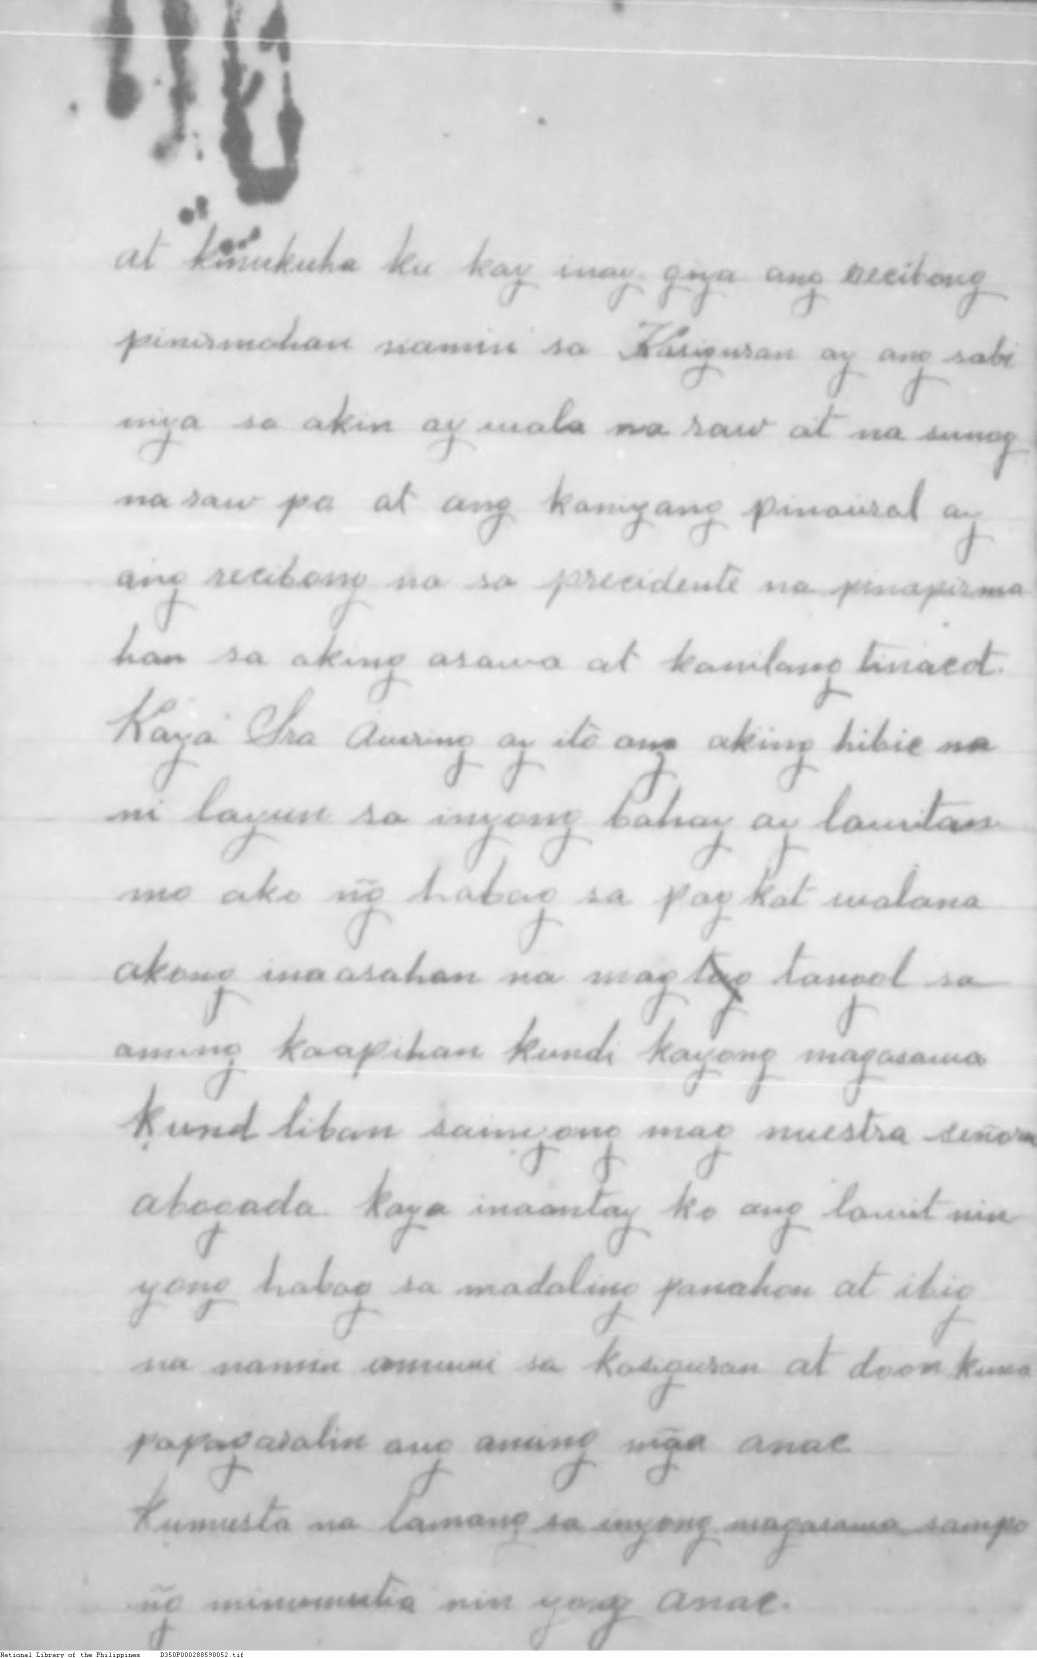 at kinukuha ku kay inay giya ang recibong
pinirmahan namin sa Kasiguran ay ang sabi
niya sa akin ay wala na raw at na sunog
na raw pa at ang kaniyang pinaiiral ay
ang recibong na sa precidente na pinapirma
han sa aking asawa at kanilang tinacot.
Kaya Sra Auring ay ito ang aking hibic na
ni layun sa inyong bahay ay lawitan
mo ako ñg habag sa pag kat walana
akong inaasahan na mag tangol sa
aming kaapihan kundi kayong magasawa
kund liban sainyong mag nuestra señora
abogada kaya inaantay ko ang lawit nin
yong habag sa madaling panahon at ibig
na namin umuwi sa kasiguran at doon kuna
papagaralin ang aming mga anac
Kumusta na lamang sa inyong magasawa sampo
ñg minumutia nin yong anac.
National Library of the Philippines D350P000288598052.tif